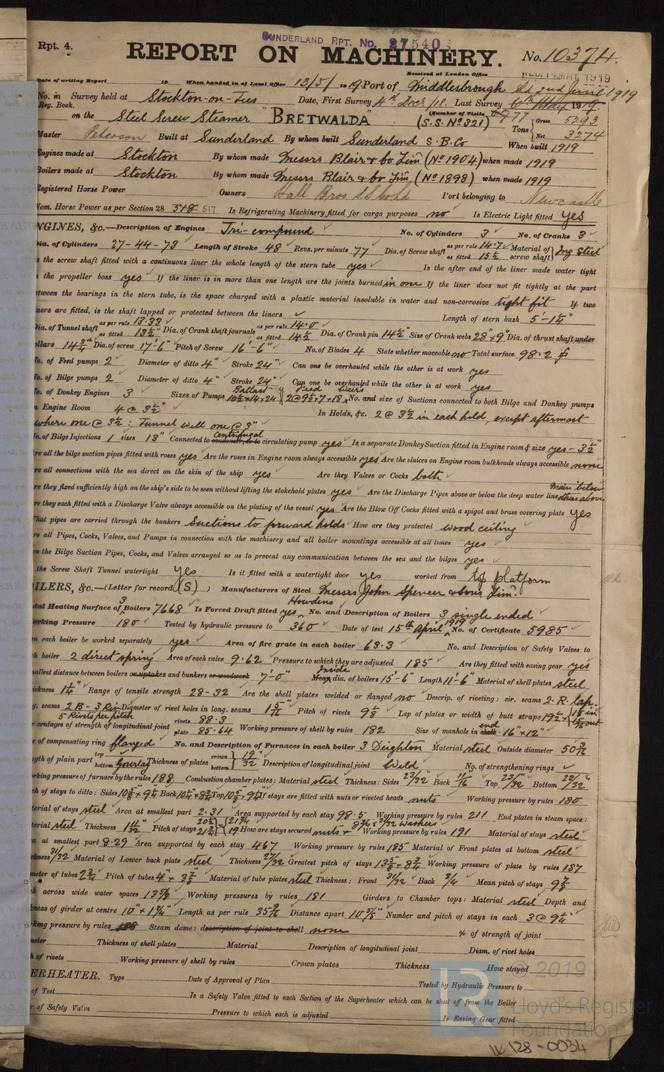 SUNDERLAND RPT. No. 27540
Rpt. 4.
REPORT ON MACHINERY.
No. 10374
Received at London Office
WED. 14 MAY 1919
Date of writing Report 19 When handed in at Local Office 13/5/1919 Port of Middlesbrough
No. in Survey held at Stockton-on-Tees Date, First Survey 4th Decr/18. Last Survey 6th May 1919.
Reg. Book.
(Number of Visits 77
on the Steel Screw Steamer "BRETWALDA" (S.S. No 321)
Tons { Gross 5293
Net 3274
Master Peterson Built at Sunderland By whom built Sunderland S.B. Co When built 1919
Engines made at Stockton By whom made Messrs Blair & Co Lim (No 1904) when made 1919
Boilers made at Stockton By whom made Messrs Blair & Co Lim (No 1898) when made 1919
Registered Horse Power Owners Hall Bros Port belonging to Newcastle
Nom. Horse Power as per Section 28 518 517 Is Refrigerating Machinery fitted for cargo purposes no Is Electric Light fitted yes
ENGINES, &c.—Description of Engines Tri-compound No. of Cylinders 3 No. of Cranks 3
Dia. of Cylinders 27-44-73 Length of Stroke 48 Revs. per minute 77 Dia. of Screw shaft as per rule 14.7 as fitted 15½ Material of screw shaft Ing Steel
Is the screw shaft fitted with a continuous liner the whole length of the stern tube yes Is the after end of the liner made water tight
in the propeller boss yes If the liner is in more than one length are the joints burned in one If the liner does not fit tightly at the part
between the bearings in the stern tube, is the space charged with a plastic material insoluble in water and non-corrosive tight fit If two
liners are fitted, is the shaft lapped or protected between the liners ✓ Length of stern bush 5'-1½"
Dia. of Tunnel shaft as per rule 13.33 as fitted 13½ Dia. of Crank shaft journals as per rule 14.0 as fitted 14½ Dia. of Crank pin 14½ Size of Crank webs 28 x 9 Dia. of thrust shaft under
collars 14½ Dia. of screw 17'-6" Pitch of Screw 16'-6" No. of Blades 4 State whether moveable no Total surface 98.2
No. of Feed pumps 2 Diameter of ditto 4" Stroke 24" Can one be overhauled while the other is at work yes
No. of Bilge pumps 2 Diameter of ditto 4" Stroke 24" Can one be overhauled while the other is at work yes
No. of Donkey Engines 3 Sizes of Pumps Ballast 10½ x 14 x 24 Feed Weirs 2@9½ x 7 x 18 No. and size of Suctions connected to both Bilge and Donkey pumps
In Engine Room 4 @ 3½" In Holds, &c. 2 @ 3½ in each hold, except aftermost
where one @ 3½ : Tunnel well one @ 3"
No. of Bilge Injections 1 sizes 13" Connected to Centrifugal circulating pump yes Is a separate Donkey Suction fitted in Engine room & size yes - 3½"
Are all the bilge suction pipes fitted with roses yes Are the roses in Engine room always accessible yes Are the sluices on Engine room bulkheads always accessible none
Are all connections with the sea direct on the skin of the ship yes Are they Valves or Cocks both
Are they fixed sufficiently high on the ship's side to be seen without lifting the stokehold plates yes Are the Discharge Pipes above or below the deep water line main below others above
Are they each fitted with a Discharge Valve always accessible on the plating of the vessel yes Are the Blow Off Cocks fitted with a spigot and brass covering plate yes
What pipes are carried through the bunkers Suctions to forward holds How are they protected wood ceiling
Are all Pipes, Cocks, Valves, and Pumps in connection with the machinery and all boiler mountings accessible at all times yes
Are the Bilge Suction Pipes, Cocks, and Valves arranged so as to prevent any communication between the sea and the bilges yes
Is the Screw Shaft Tunnel watertight yes Is it fitted with a watertight door yes worked from top platform
BOILERS, &c.—(Letter for record (S)) Manufacturers of Steel Messrs John Spencer & Sons Lim.
Total Heating Surface of Boilers 7668 Is Forced Draft fitted Howdens yes No. and Description of Boilers 3 single ended
Working Pressure 180 Tested by hydraulic pressure to 360 Date of test 15th April 1919 No. of Certificate 5985
Can each boiler be worked separately yes Area of fire grate in each boiler 63.3 No. and Description of Safety Valves to
each boiler 2 direct spring Area of each valve 9.62 Pressure to which they are adjusted 185 Are they fitted with easing gear yes
Smallest distance between boilers or uptakes and bunkers or woodwork 7'-0" Inside dia. of boilers 15'-6" Length 11'-6" Material of shell plates steel
Thickness 1¼" Range of tensile strength 28-32 Are the shell plates welded or flanged no Descrip. of riveting: cir. seams 2. R. Lap
long. seams 2 B - 3 Riv 5 Rivets per pitch Diameter of rivet holes in long. seams 1 5/16" Pitch of rivets 9⅛ Lap of plates or width of butt straps
Per centages of strength of longitudinal joint rivets 88.3 plate 85.64 Working pressure of shell by rules 182 Size of manhole in end 16" x 12"
Size of compensating ring flanged No. and Description of Furnaces in each boiler 3 Deighton Material steel Outside diameter
Length of plain part top bottom Thickness of plates crown bottom 19/32 Description of longitudinal joint Weld No. of strengthening rings ✓
Working pressure of furnace by the rules 188 Combustion chamber plates: Material steel Thickness: Sides 23/32 Back 11/16 Top 23/32 Bottom 23/32
Pitch of stays to ditto: Sides Back Top If stays are fitted with nuts or riveted heads nuts Working pressure by rules 180
Material of stays steel Area at smallest part 2.31 Area supported by each stay 98.5 Working pressure by rules 211 End plates in steam space:
Material steel Thickness Pitch of stays How are stays secured nuts & washers Working pressure by rules 191 Material of stays steel
Area at smallest part 8.29 Area supported by each stay 467 Working pressure by rules 185 Material of Front plates at bottom steel
Thickness 31/32 Material of Lower back plate steel Thickness 27/32 Greatest pitch of stays Working pressure of plate by rules 187
Diameter of tubes 2¾ Pitch of tubes Material of tube plates steel Thickness: Front 31/32 Back ¾ Mean pitch of stays
Pitch across wide water spaces Working pressures by rules 181 Girders to Chamber tops: Material steel Depth and
thickness of girder at centre 10" x 1¾" Length as per rule Distance apart 10⅝" Number and pitch of stays in each 3@9¼"
Working pressure by rules Steam dome: description of joint to shell none % of strength of joint
Diameter Thickness of shell plates Material Description of longitudinal joint Diam. of rivet holes
Pitch of rivets Working pressure of shell by rules Crown plates Thickness How stayed
SUPERHEATER. Type Date of Approval of Plan Tested by Hydraulic Pressure to
Date of Test Is a Safety Valve fitted to each Section of the Superheater which can be shut off from the Boiler
Diameter of Safety Valve Pressure to which each is adjusted Is Easing Gear fitted
© 2019
Lloyd's Register
Foundation
W128-0034